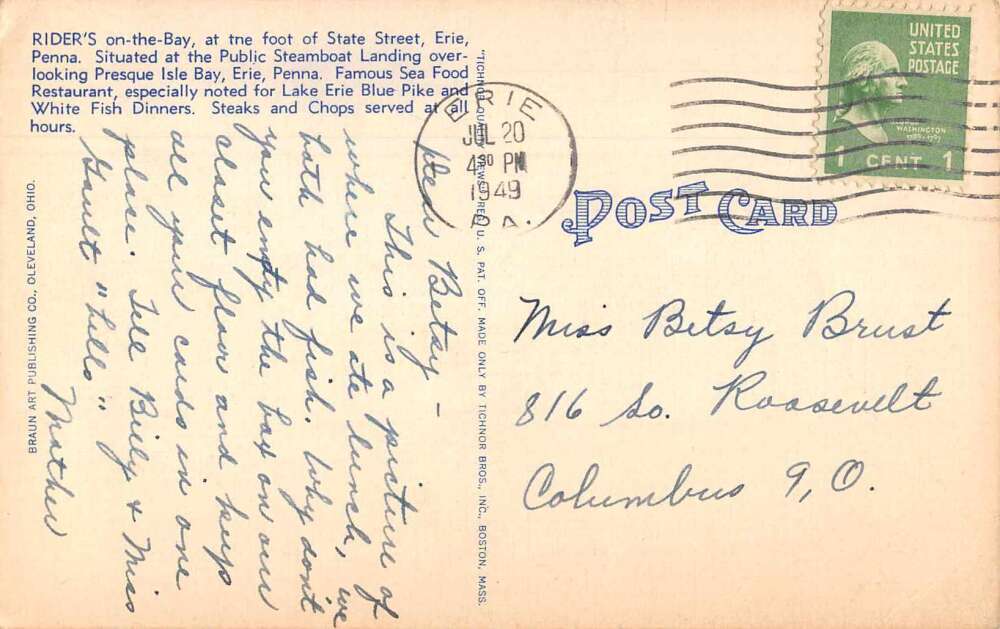 RIDER'S on-the-Bay, at tne foot of State Street, Erie,
Penna. Situated at the Public Steamboat Landing over-
looking Presque Isle Bay, Erie, Penna. Famous Sea Food
Restaurant, especially noted for Lake Erie Blue Pike and
White Fish Dinners. Steaks and Chops served at all
hours.
Dear Betsy –
This is a picture of
where we ate lunch, we
both had fish. Why don't
you empty the box on our
closet floor and keep
all your cards in one
place. Tell Billy & Miss
Gault "hello"
Mother
BRAUN ART PUBLISHING CO., CLEVELAND, OHIO.
"TICHNOR QUALITY VIEWS," REG. U. S. PAT. OFF. MADE ONLY BY TICHNOR BROS., INC., BOSTON, MASS.
ERIE
JUL 20
4 30 PM
1949
PA.
UNITED
STATES
POSTAGE
WASHINGTON
1789-1797
1 CENT 1
POST CARD
Miss Betsy Brust
816 So. Roosevelt
Columbus 9, O.